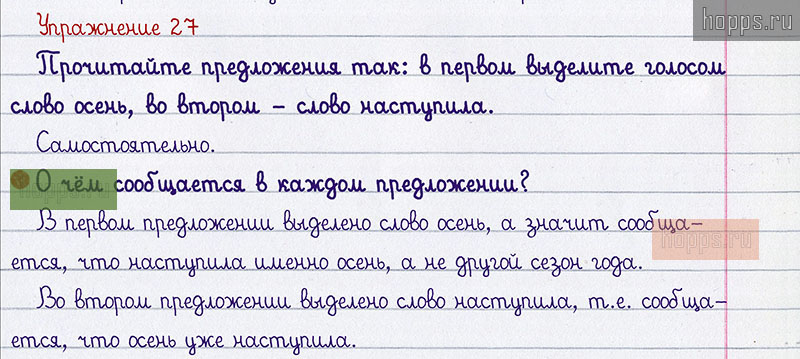 hopps.ru
Упражнение 27
Прочитайте предложения так: в первом выделите голосом
слово осень, во втором – слово наступила.
Самостоятельно.
О чём сообщается в каждом предложении?
hopps.ru
В первом предложении выделено слово осень, а значит сообща-
hopps.ru
ется, что наступила именно осень, а не другой сезон года.
Во втором предложении выделено слово наступила, т.е. сообща-
ется, что осень уже наступила.